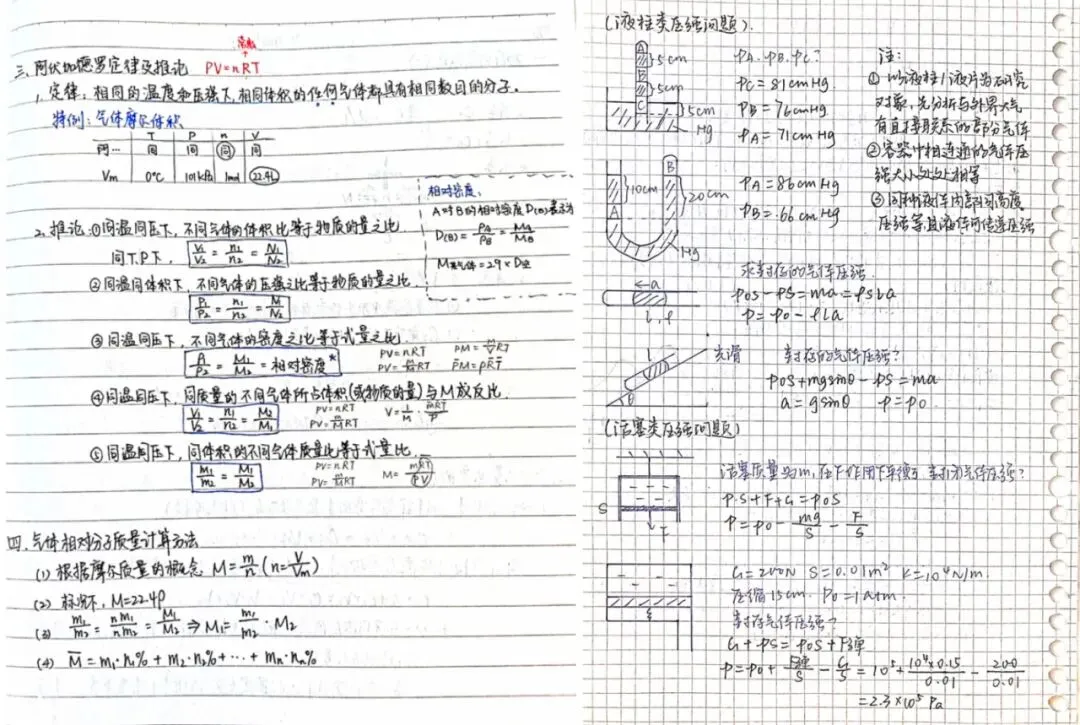 常数
三、阿伏加德罗定律及推论 PV=nRT
1. 定律：相同的温度和压强下，相同体积的任何气体都具有相同数目的分子。
特例：气体摩尔体积
T P n V
阿… 同 同 同 同
Vm 0℃ 101kPa 1mol 22.4L
相对密度：
A对B的相对密度D(B)表示为
D(B)=ρA/ρB=MA/MB
M某气体=29×D空
2. 推论：①同温同压下，不同气体的体积比等于物质的量之比
同T.P下，V1/V2=n1/n2=N1/N2
②同温同体积下，不同气体的压强之比等于物质的量之比.
P1/P2=n1/n2=N1/N2
③同温同压下，不同气体的密度之比等于式量之比.
ρ1/ρ2=M1/M2=相对密度* PV=nRT PM=m/V RT
PV=m/M RT PM=ρRT
④同温同压下，同质量的不同气体所占体积(或物质的量)与M成反比.
V1/V2=n1/n2=M2/M1 PV=nRT V=1/M·mRT/P
PV=m/M RT
⑤同温同压下，同体积的不同气体质量比等于式量比.
m1/m2=M1/M2 PV=nRT M=mRT/PV
PV=m/M RT
四、气体相对分子质量计算方法
(1) 根据摩尔质量的概念 M=m/n (n=V/Vm)
(2) 标况下，M=22.4ρ
(3) m1/m2=nM1/nM2=M1/M2⇒M1=m1/m2·M2
(4) M̄=m1·n1%+m2·n2%+…+mn·nn%
(液柱类压强问题).
A
5cm
B
5cm
C
5cm
Hg
PA.PB.PC?
PC=81cmHg
PB=76cmHg
PA=71cmHg
注：
①以液柱/液片为研究
对象，先分析与外界大气
有直接联系的部分气体
②容器中相连通的气体压
强大小处处相等
③同种液体内部同高度
压强等且液体可传递压强
B
10cm
20cm
A
Hg
PA=86cmHg
PB=66cmHg
求封存的气体压强.
←a
l,ρ
P0S-PS=ma=ρSla
P=P0-ρla
l
θ
光滑
封存的气体压强?
P0S+mgsinθ-PS=ma
a=gsinθ P=P0.
(活塞类压强问题)
S
F
活塞质量为m,在F作用下平衡,封闭气体压强?
P·S+F+G=P0S
P=P0-mg/S-F/S
G=200N S=0.01m² K=10⁴N/m.
压缩15cm. P0=1atm.
封存气体压强?
G+PS=P0S+F弹
P=P0+F弹/S-G/S=10⁵+10⁴×0.15/0.01-200/0.01
=2.3×10⁵Pa